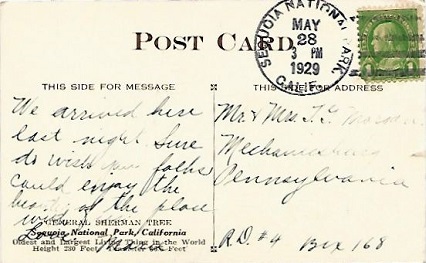 POST CARD
SEQUOIA NATIONAL PARK,
MAY
28
3 PM
1929
CALIF.
THIS SIDE FOR MESSAGE
THIS SIDE FOR ADDRESS
We arrived here
last night. Sure
do wish our folks
could enjoy the
beauty of the place
with
Love
GENERAL SHERMAN TREE
Sequoia National Park, California
Oldest and Largest Living Thing in the World
Height 280 Feet Feet
Mr & Mrs. T. G.
Mechanicsburg
Pennsylvania
R.D. #4 Box 168